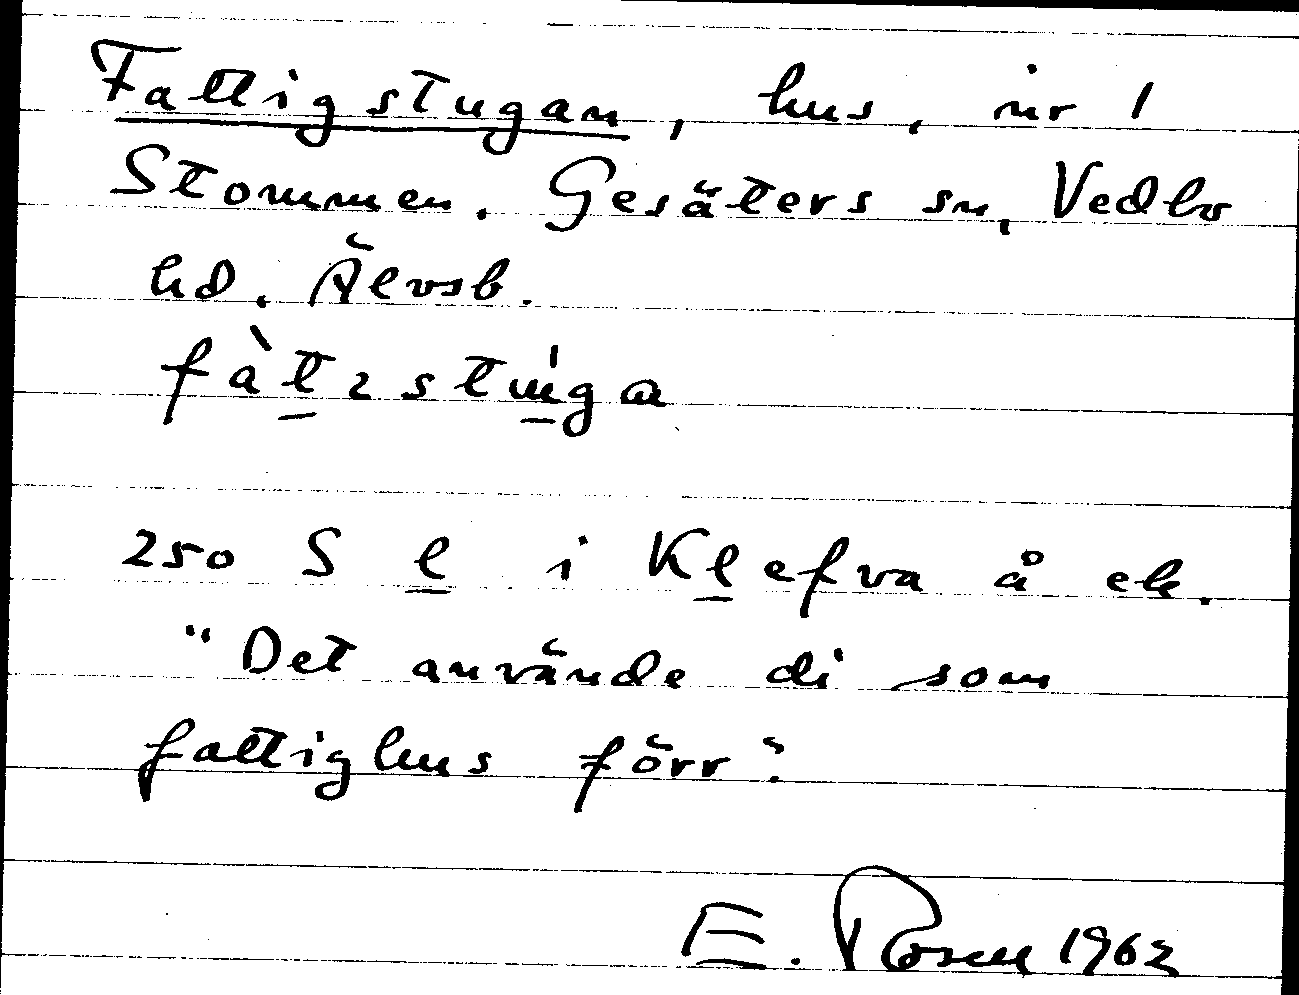 Fattigstugan, hus, nr 1
Stommen. Gesäters sn, Vedbo
hd. Älvsb.
250 S l i Klefva å ek.
"Det använde di som
fattighus förr".
E. Rosen 1962